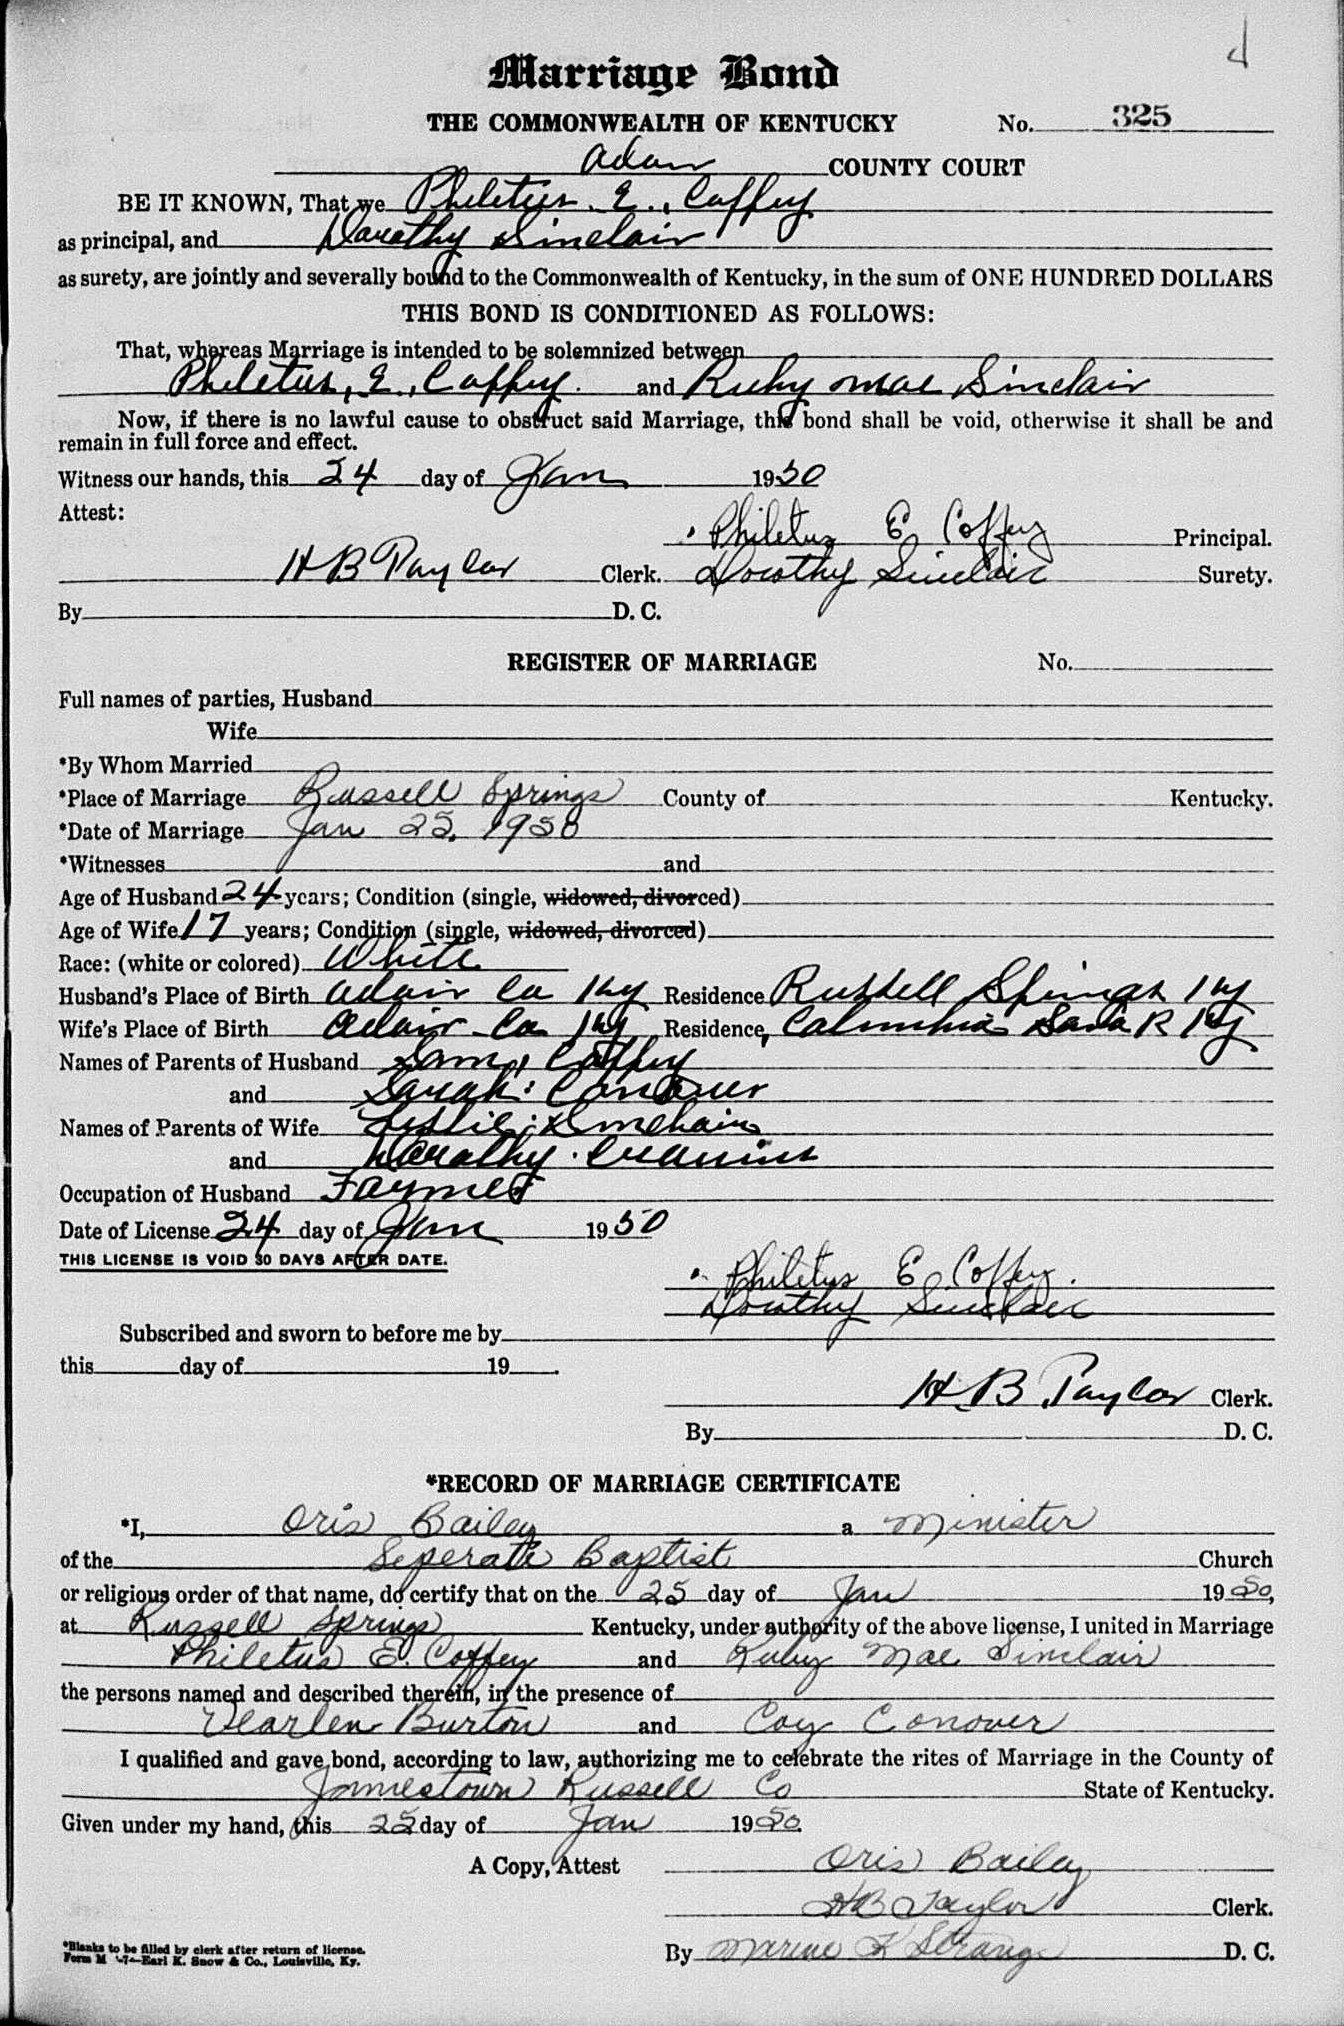 Marriage Bond
THE COMMONWEALTH OF KENTUCKY No. 325
Adair COUNTY COURT
BE IT KNOWN, That we Philetus. E., Coffey
as principal, and Dorothy Sinclair
as surety, are jointly and severally bound to the Commonwealth of Kentucky, in the sum of ONE HUNDRED DOLLARS
THIS BOND IS CONDITIONED AS FOLLOWS:
That, whereas Marriage is intended to be solemnized between
Philetus, E., Coffey. and Ruby Mae Sinclair
Now, if there is no lawful cause to obstruct said Marriage, this bond shall be void, otherwise it shall be and
remain in full force and effect.
Witness our hands, this 24 day of Jan 1950
Attest:
Philetus E Coffey Principal.
H B Taylor Clerk. Dorothy Sinclair Surety.
By D. C.
REGISTER OF MARRIAGE No.
Full names of parties, Husband
Wife
*By Whom Married
*Place of Marriage Russell Springs County of Kentucky.
*Date of Marriage Jan 25, 1950
*Witnesses and
Age of Husband 24 years; Condition (single, widowed, divorced)
Age of Wife 17 years; Condition (single, widowed, divorced)
Race: (white or colored) White
Husband's Place of Birth Adair Co Ky Residence Russell Springs Ky
Wife's Place of Birth Adair Co Ky Residence, Columbia R Ky
Names of Parents of Husband Sam, Coffey
and Sarah: Conover
Names of Parents of Wife Leslie: Sinclair
and Dorothy
Occupation of Husband Farmer
Date of License 24 day of Jan 1950
THIS LICENSE IS VOID 30 DAYS AFTER DATE.
Philetus E Coffey.
Dorothy Sinclair
Subscribed and sworn to before me by
this day of 19 .
H. B. Taylor Clerk.
By D. C.
*RECORD OF MARRIAGE CERTIFICATE
*I, Oris Bailey a Minister
of the Seperate Baptist Church
or religious order of that name, do certify that on the 25 day of Jan 1950,
at Russell Springs Kentucky, under authority of the above license, I united in Marriage
Philetus E. Coffey and Ruby Mae Sinclair
the persons named and described therein, in the presence of
Burton and Coy Conover
I qualified and gave bond, according to law, authorizing me to celebrate the rites of Marriage in the County of
Jamestown Russell Co State of Kentucky.
Given under my hand, this 25 day of Jan 1950.
A Copy, Attest Oris Bailey
H B Taylor Clerk.
By K Strange D. C.
*Blanks to be filled by clerk after return of license.
Form M -7-Earl K. Snow & Co., Louisville, Ky.